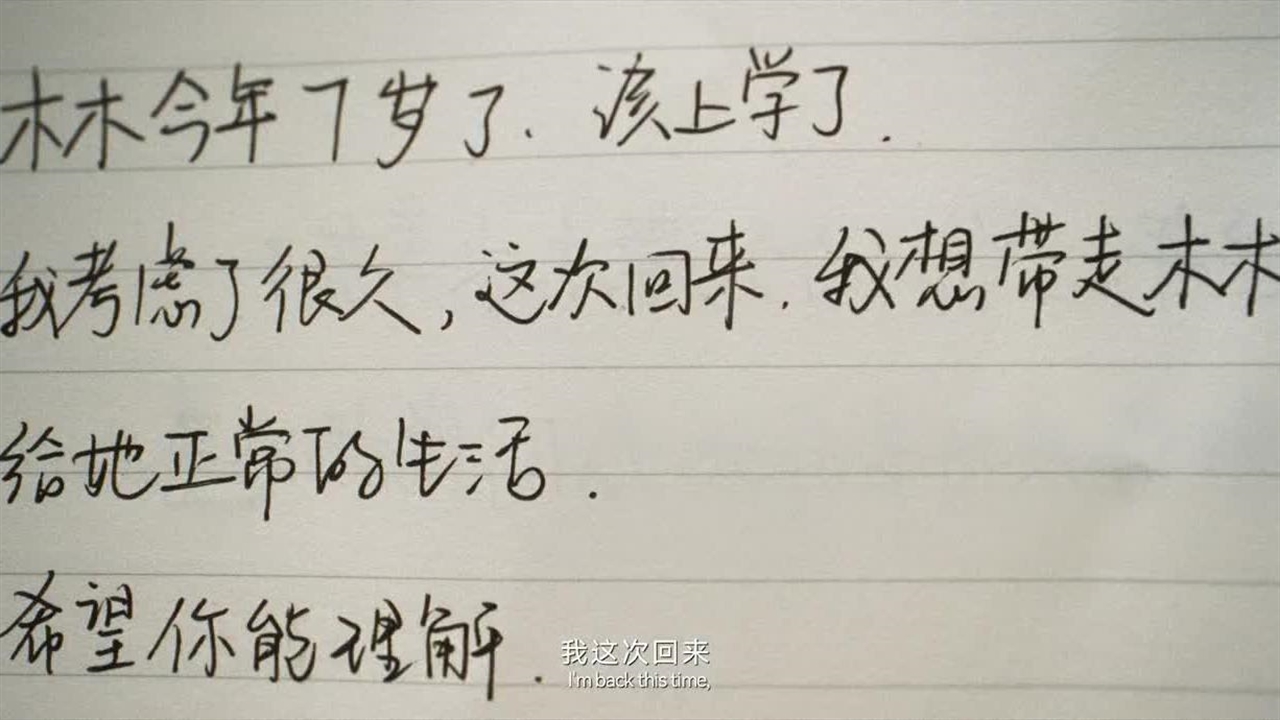 木木今年7岁了.该上学了.
我考虑了很久,这次回来.我想带走木木
给她正常的生活.
希望你能理解.
我这次回来
I'm back this time,